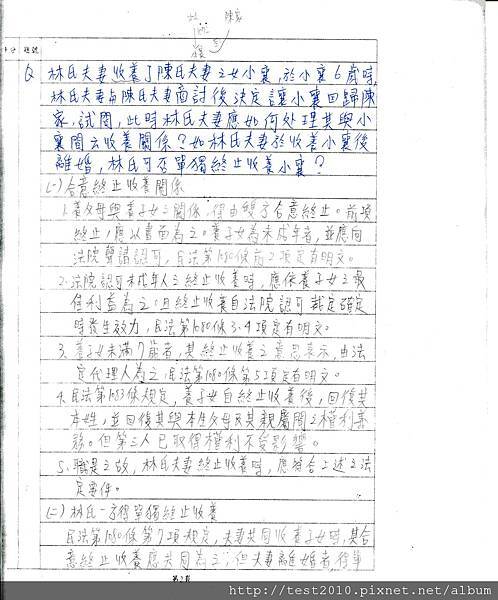 陳家
分 題號
Q 林氏夫妻收養了陳氏夫妻之女小襄,於小襄6歲時,
林氏夫妻與陳氏夫妻商討後決定讓小襄回歸陳
家,試問,此時林氏夫妻應如何處理其與小
襄間之收養關係?如林氏夫妻於收養小襄後
離婚,林氏可否單獨終止收養小襄?
(一)合意終止收養關係
1.養父母與養子女之關係,得由雙方合意終止。前項
終止,應以書面為之。養子女為未成年者,並應向
法院聲請認可,民法第1080條前2項定有明文。
2.法院認可未成年人之終止收養時,應依養子女之最
佳利益為之。且終止收養自法院認可裁定確定
時發生效力,民法第1080條3.4項定有明文。
3.養子女未滿7歲者,其終止收養之意思表示,由法
定代理人為之,民法第1080條第5項定有明文。
4.民法第1083條規定,養子女自終止收養後,回復其
本姓,並回復其與本生父母及其親屬間之權利義
務。但第三人已取得權利不受影響。
5.職是之故,林氏夫妻終止收養時,應符合上述之法
定要件。
(二)林氏一方得單獨終止收養
民法第1080條第7項規定,夫妻共同收養子女時,其合
意終止收養應共同為之,但夫妻離婚者,得單
第2頁
http://test2010.pixnet.net/album